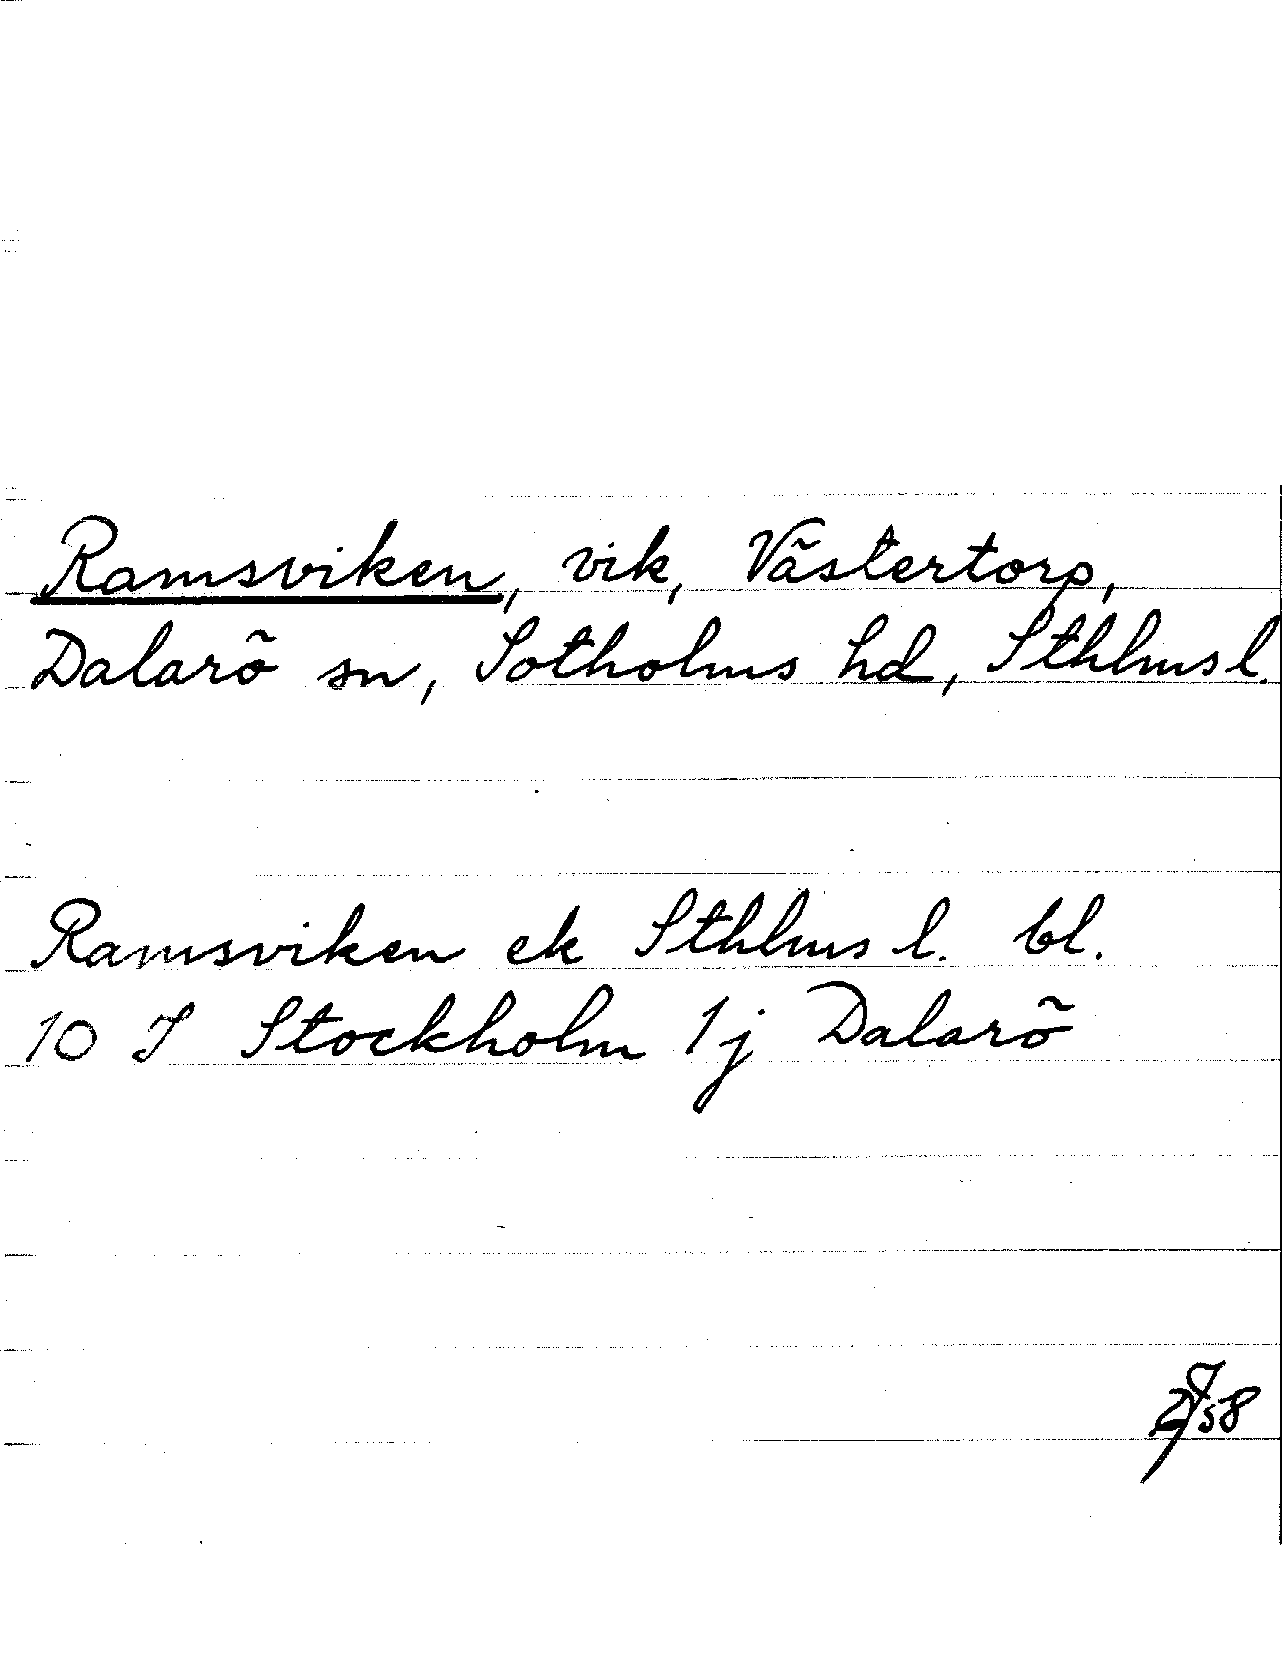 Ramsviken, vik, Västertorp,
Dalarö sn, Sotholms hd, Sthlms l.
Ramsviken ek Sthlms l. bl.
10 I Stockholm 1j Dalarö